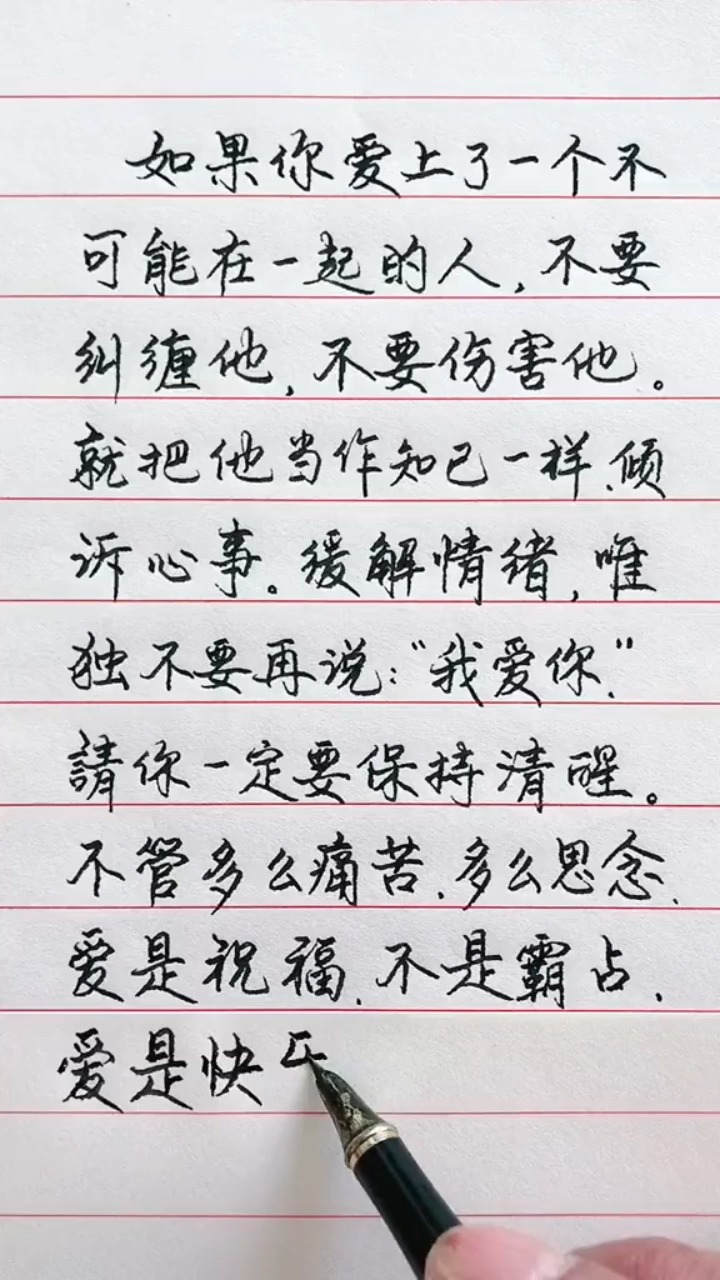 如果你爱上了一个不
可能在一起的人,不要
纠缠他,不要伤害他。
就把他当作知己一样,倾
诉心事。缓解情绪,唯
独不要再说:“我爱你.”
請你一定要保持清醒。
不管多么痛苦,多么思念,
爱是祝福,不是霸占,
爱是快